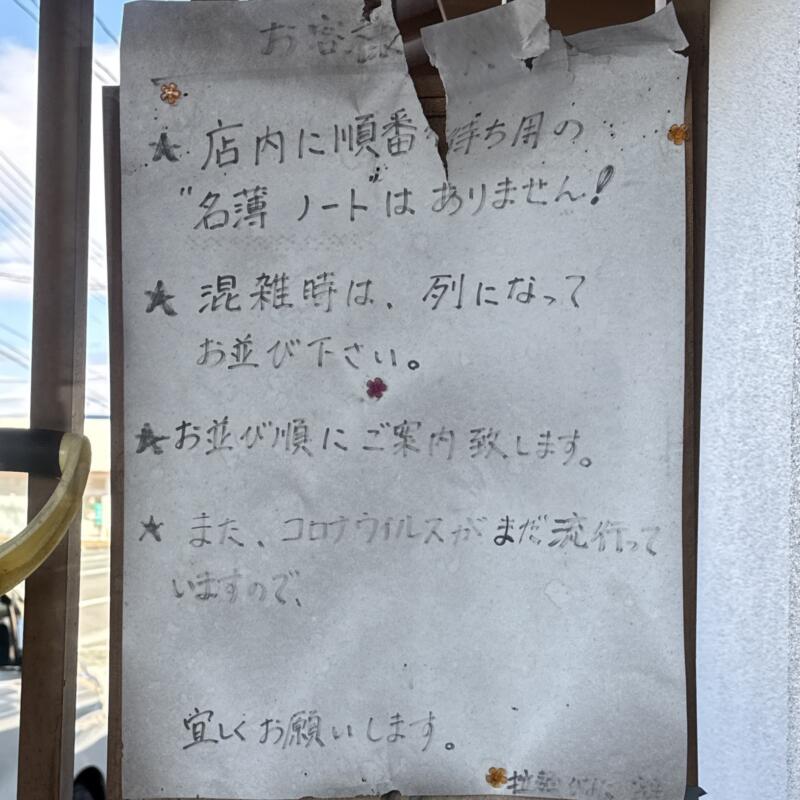 お客様
★ 店内に順番待ち用の
"名薄 ノート"は ありません!
★ 混雑時は、列になって
お並び下さい。
★お並び順にご案内致します。
★ また、コロナウイルスがまだ流行って
いますので、
宜しくお願いします。